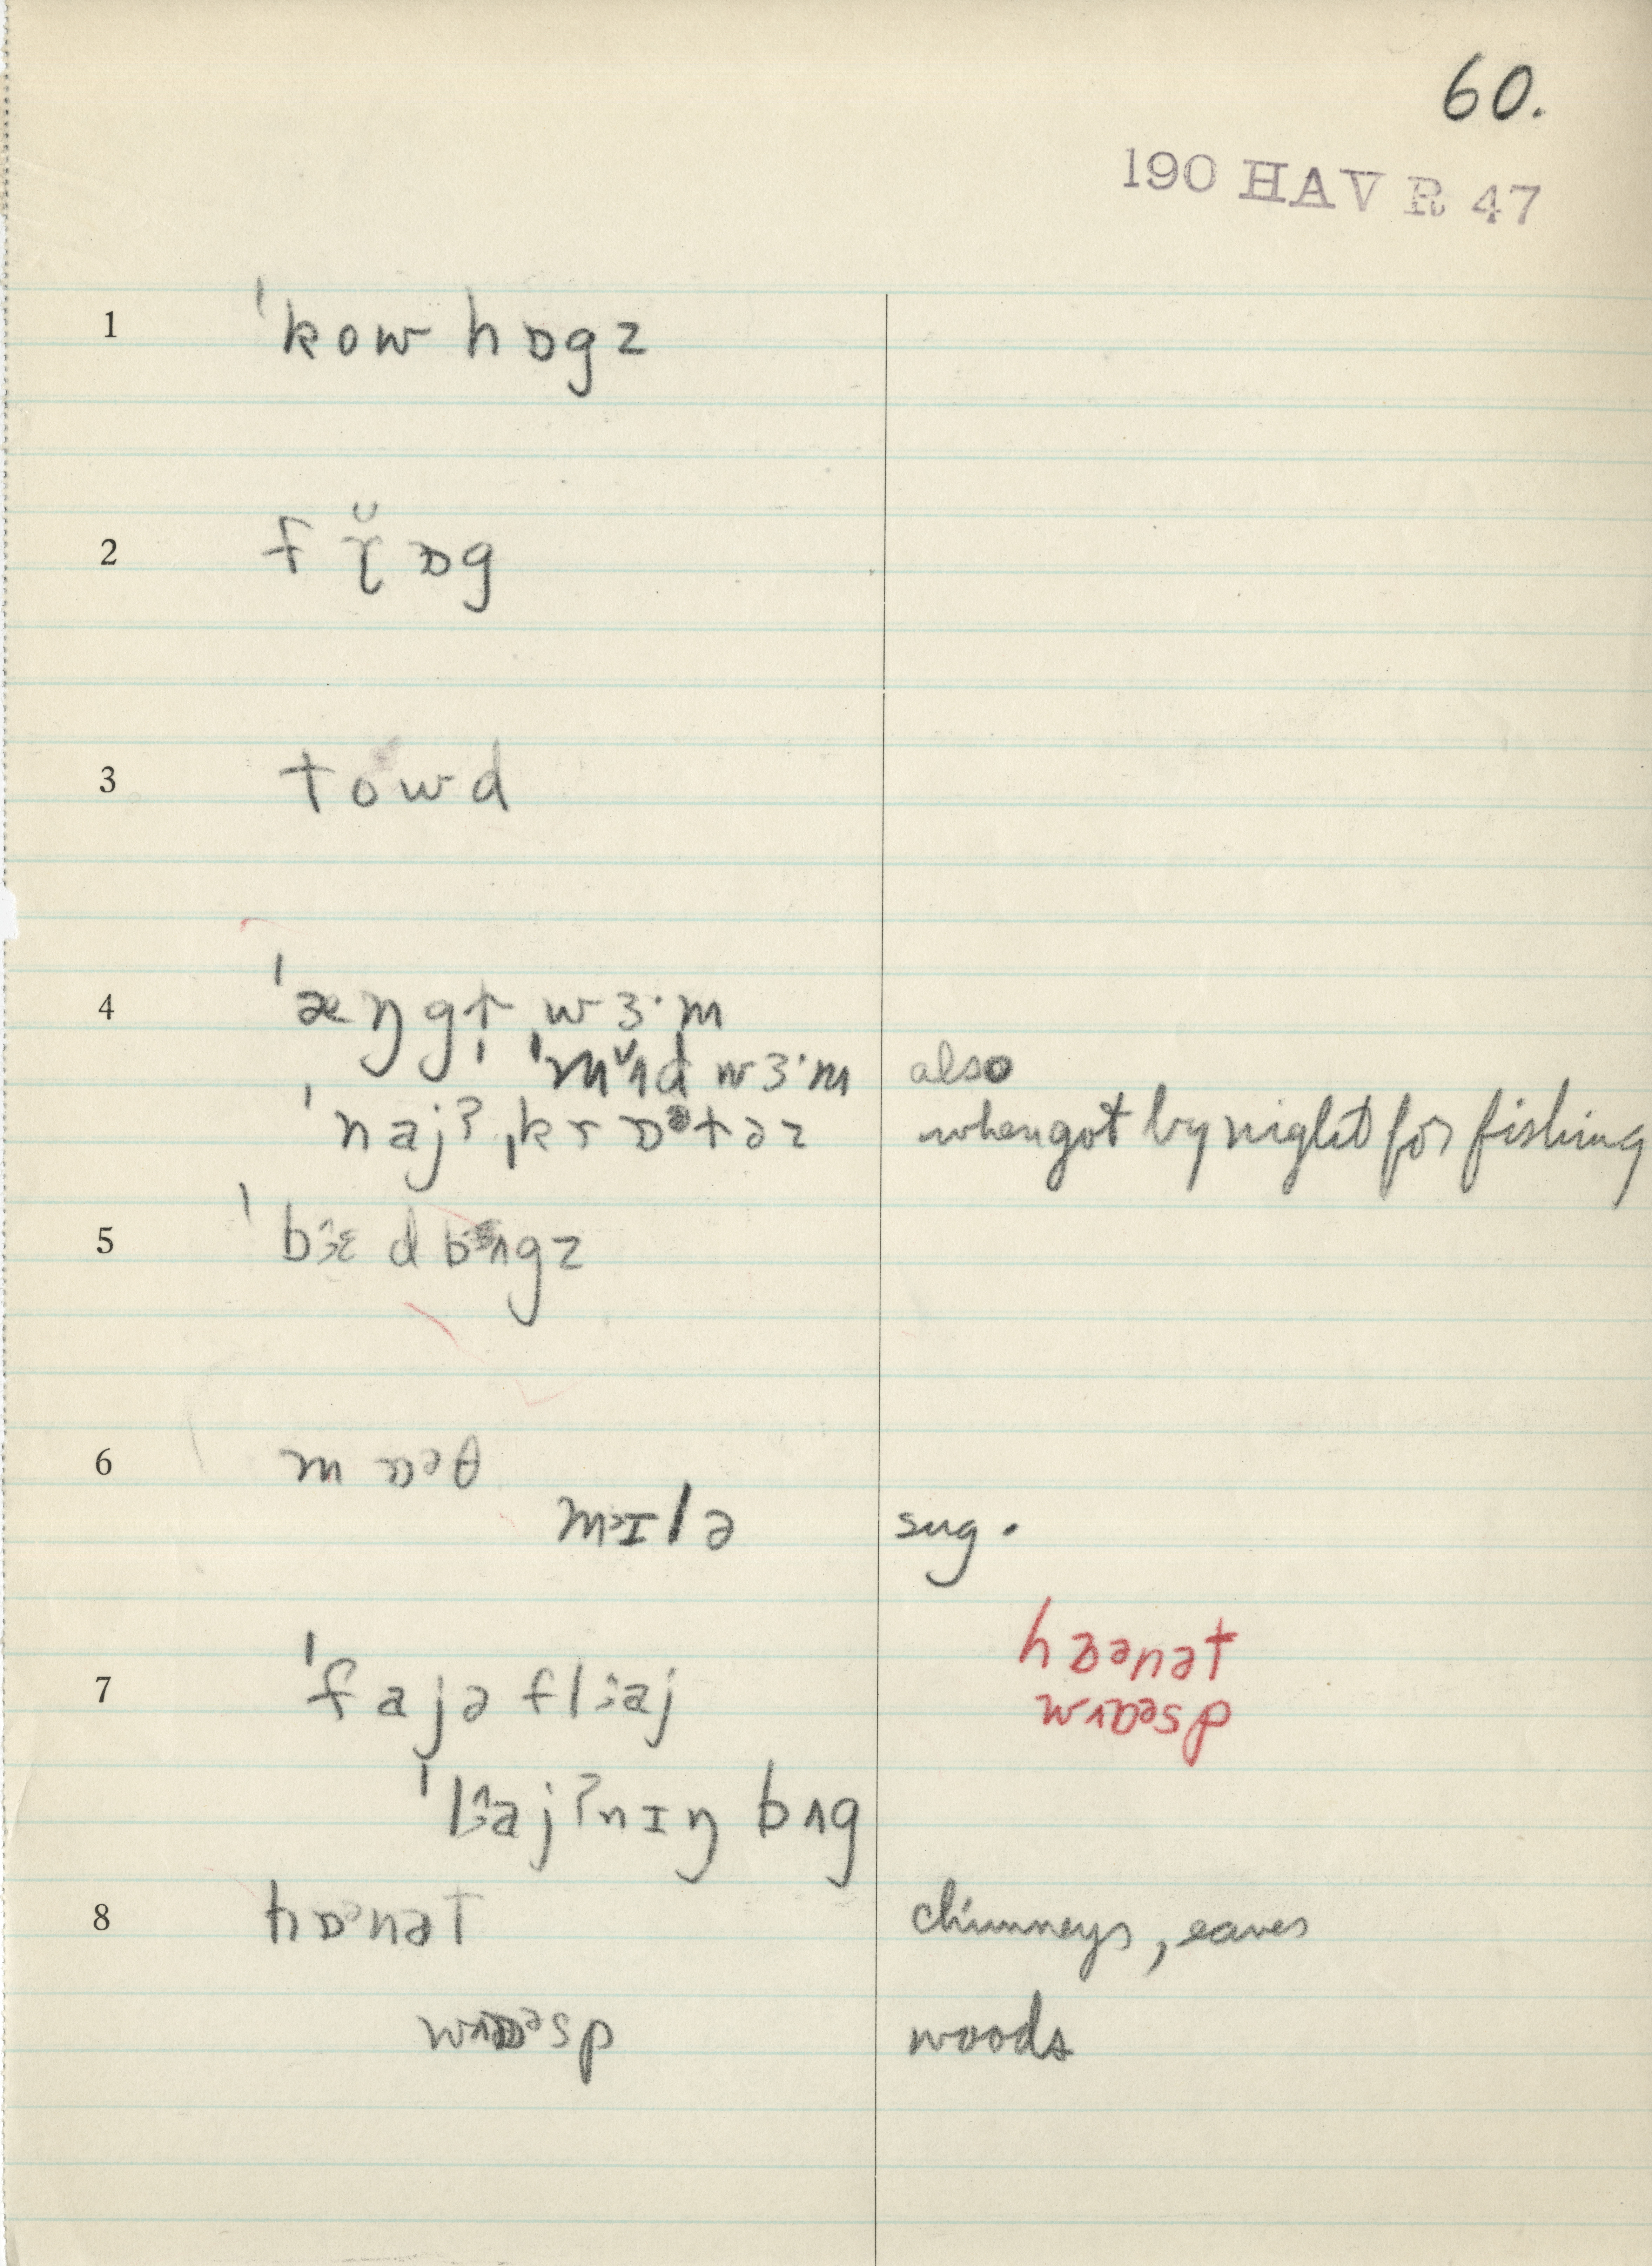 60.
190 HAV R 47
1 ˈkow hɒgz
2 f ɒg
3 towd
4 ˈæŋgɫ̩ˌwɜ·m
ˈmʌd wɜ·m also
ˈnajʔˌkrɒᵊtəz when got by night for fishing
5 ˈbɛdbʌgz
6 mɒᵊθ
mɪlə sug.
hɒənət
7 ˈfajəflaj
wɒəsp
ˈlajʔnɪŋ bʌg
8 hɒᵊnət chimneys, eaves
wɒᵊsp woods